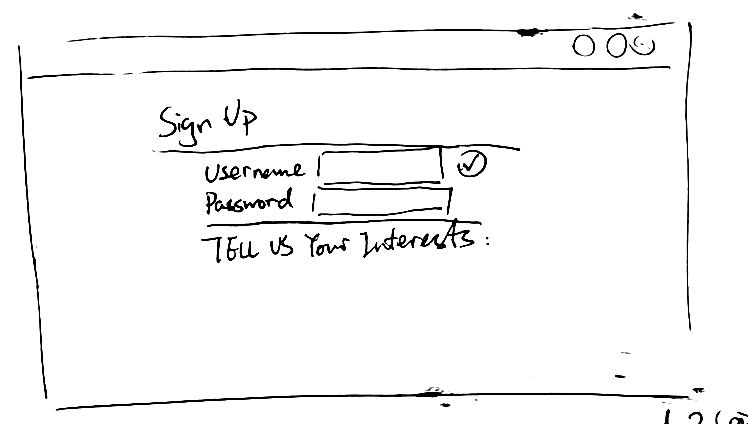 Sign Up
Username
Password
TELL US Your Interests: